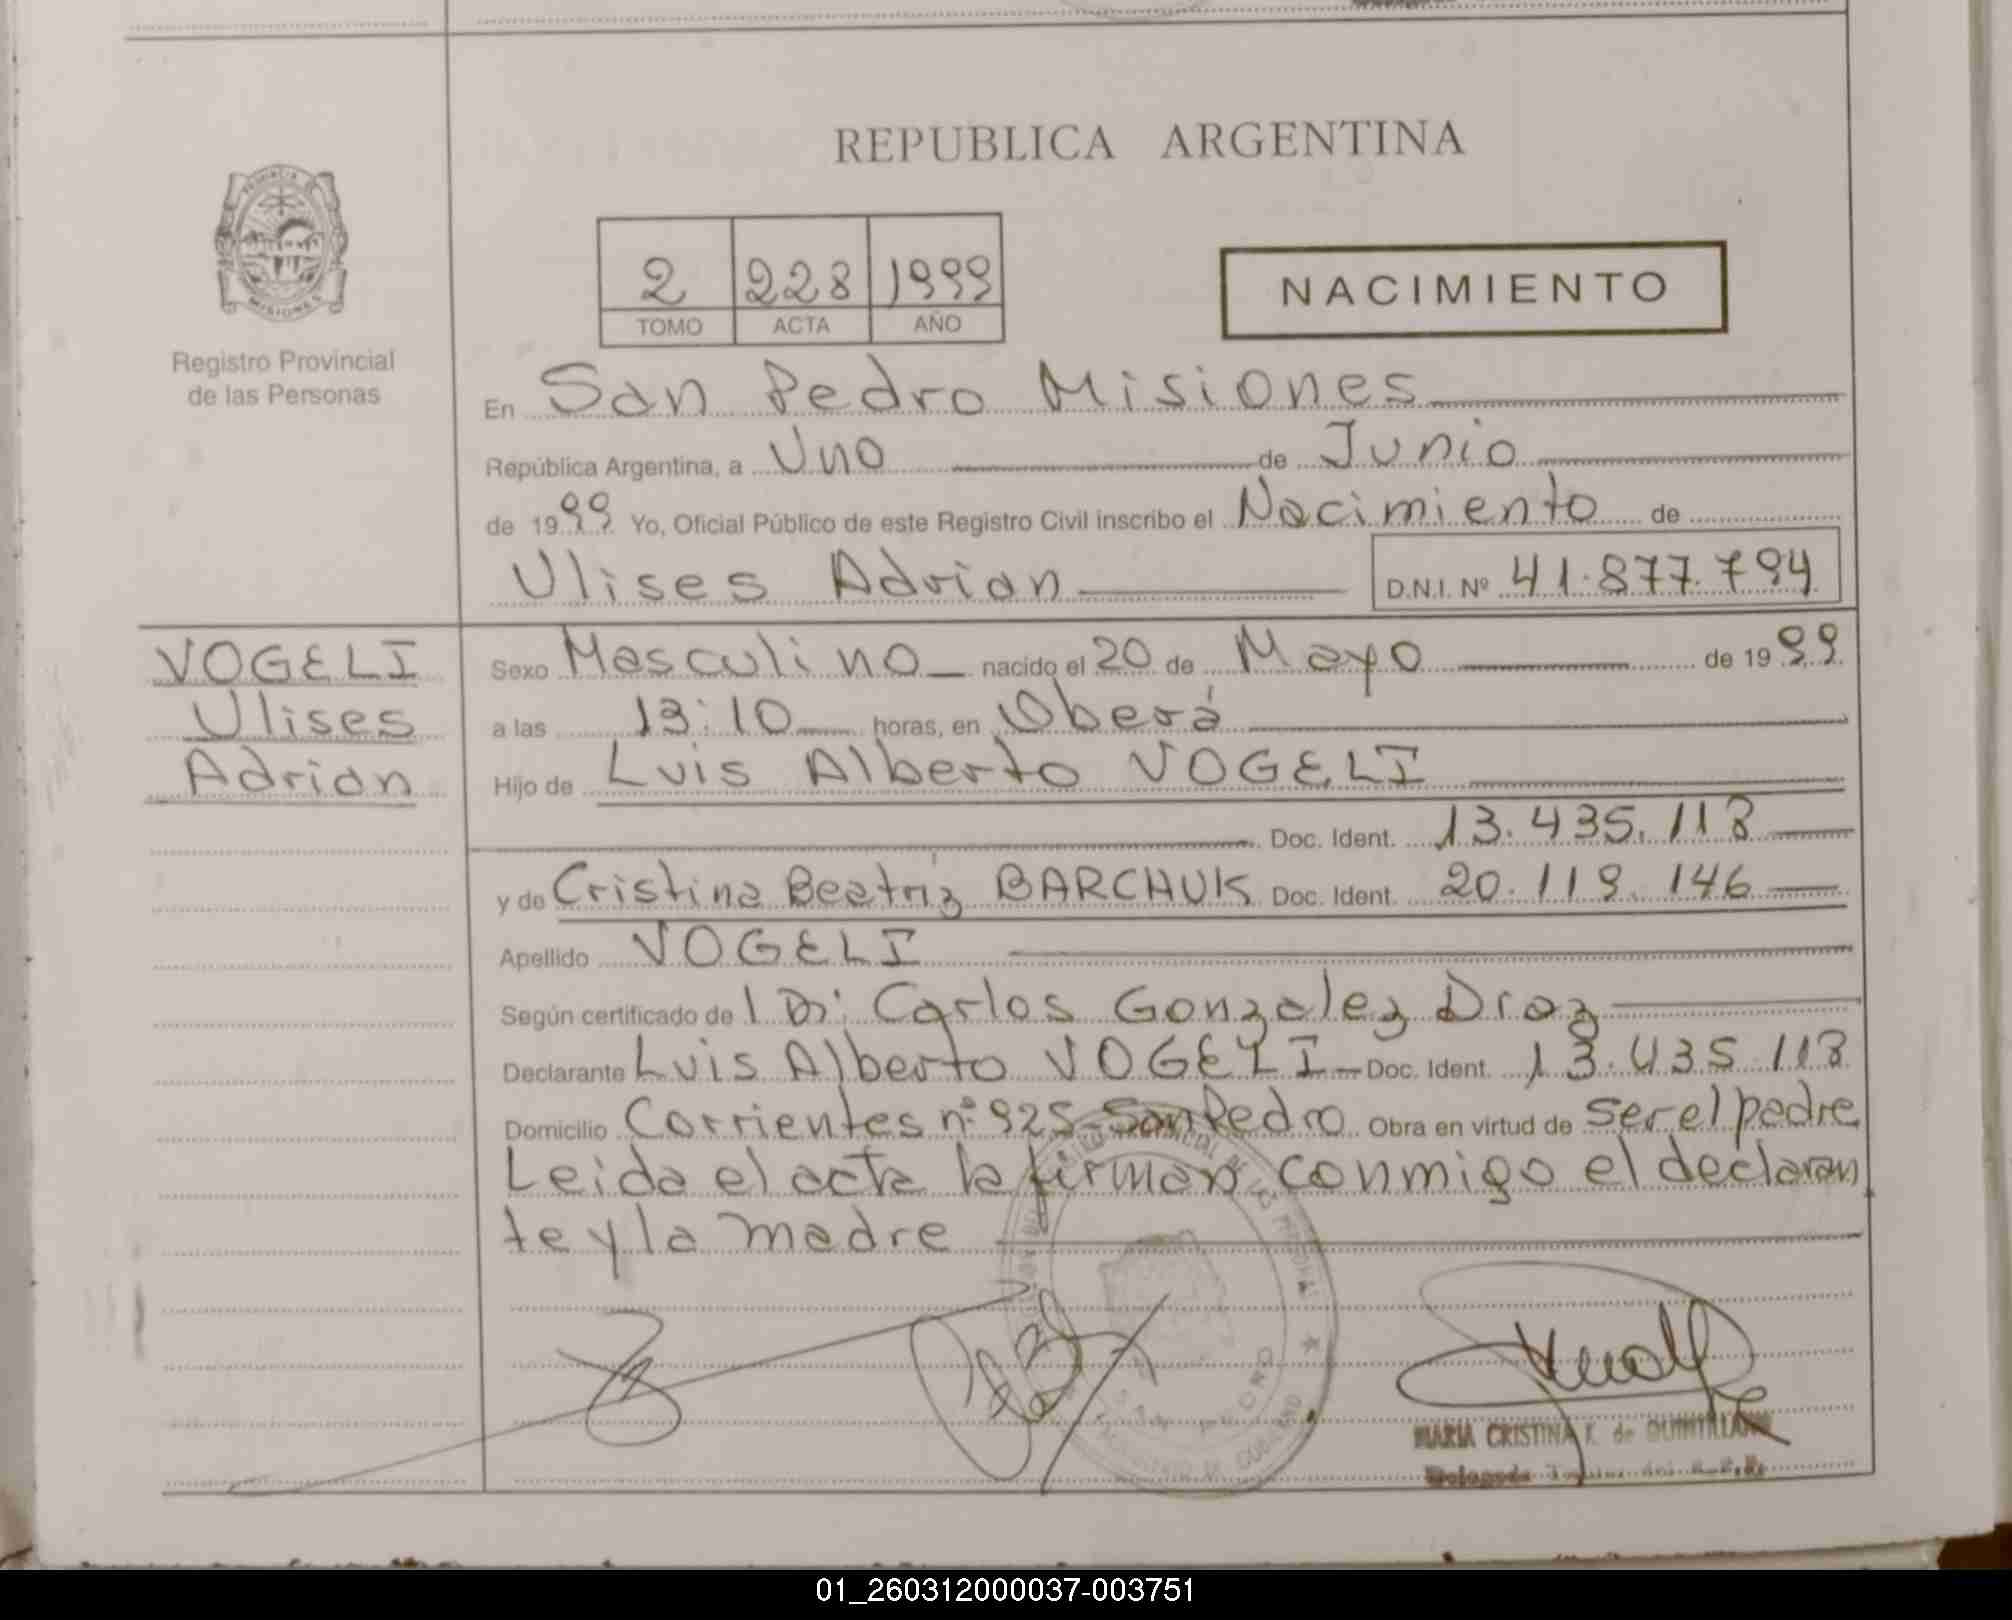 REPUBLICA ARGENTINA
PROVINCIA DE
MISIONES
Registro Provincial
de las Personas
2 228 1999
TOMO ACTA AÑO
NACIMIENTO
En San Pedro Misiones
República Argentina, a Uno de Junio
de 1999 Yo, Oficial Público de este Registro Civil inscribo el Nacimiento de
Ulises Adrian D.N.I. Nº 41.877.794
VOGELI
Ulises
Adrian
Sexo Masculino nacido el 20 de Mayo de 1999
a las 13:10 horas, en Oberá
Hijo de Luis Alberto VOGELI
Doc. Ident. 13.435.118
y de Cristina Beatriz BARCHUK Doc. Ident. 20.119.146
Apellido VOGELI
Según certificado de l Dr: Carlos Gonzalez Diaz
Declarante Luis Alberto VOGELI Doc. Ident. 13.435.118
Domicilio Corrientes nº 925 San Pedro Obra en virtud de ser el padre
Leida el acta la firman conmigo el declaran
te y la madre
SAN PEDRO
MARIA CRISTINA K. de QUINTILLAN
Delegada
01_260312000037-003751